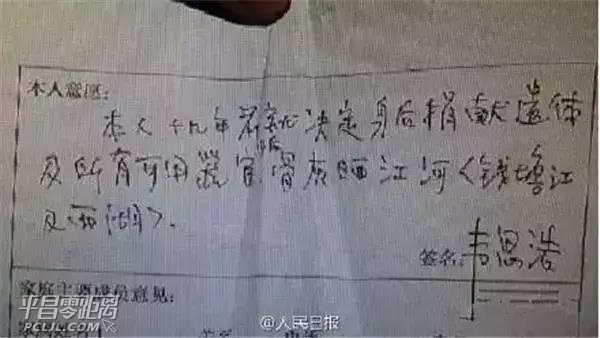 本人意愿：
本人十九年前就决定身后捐献遗体
及所有可用器官，骨灰洒江河〈钱塘江
及西湖〉.
签名：韦思浩
家庭主要成员意见：
平昌零距离
PCLJL.COM
@人民日报